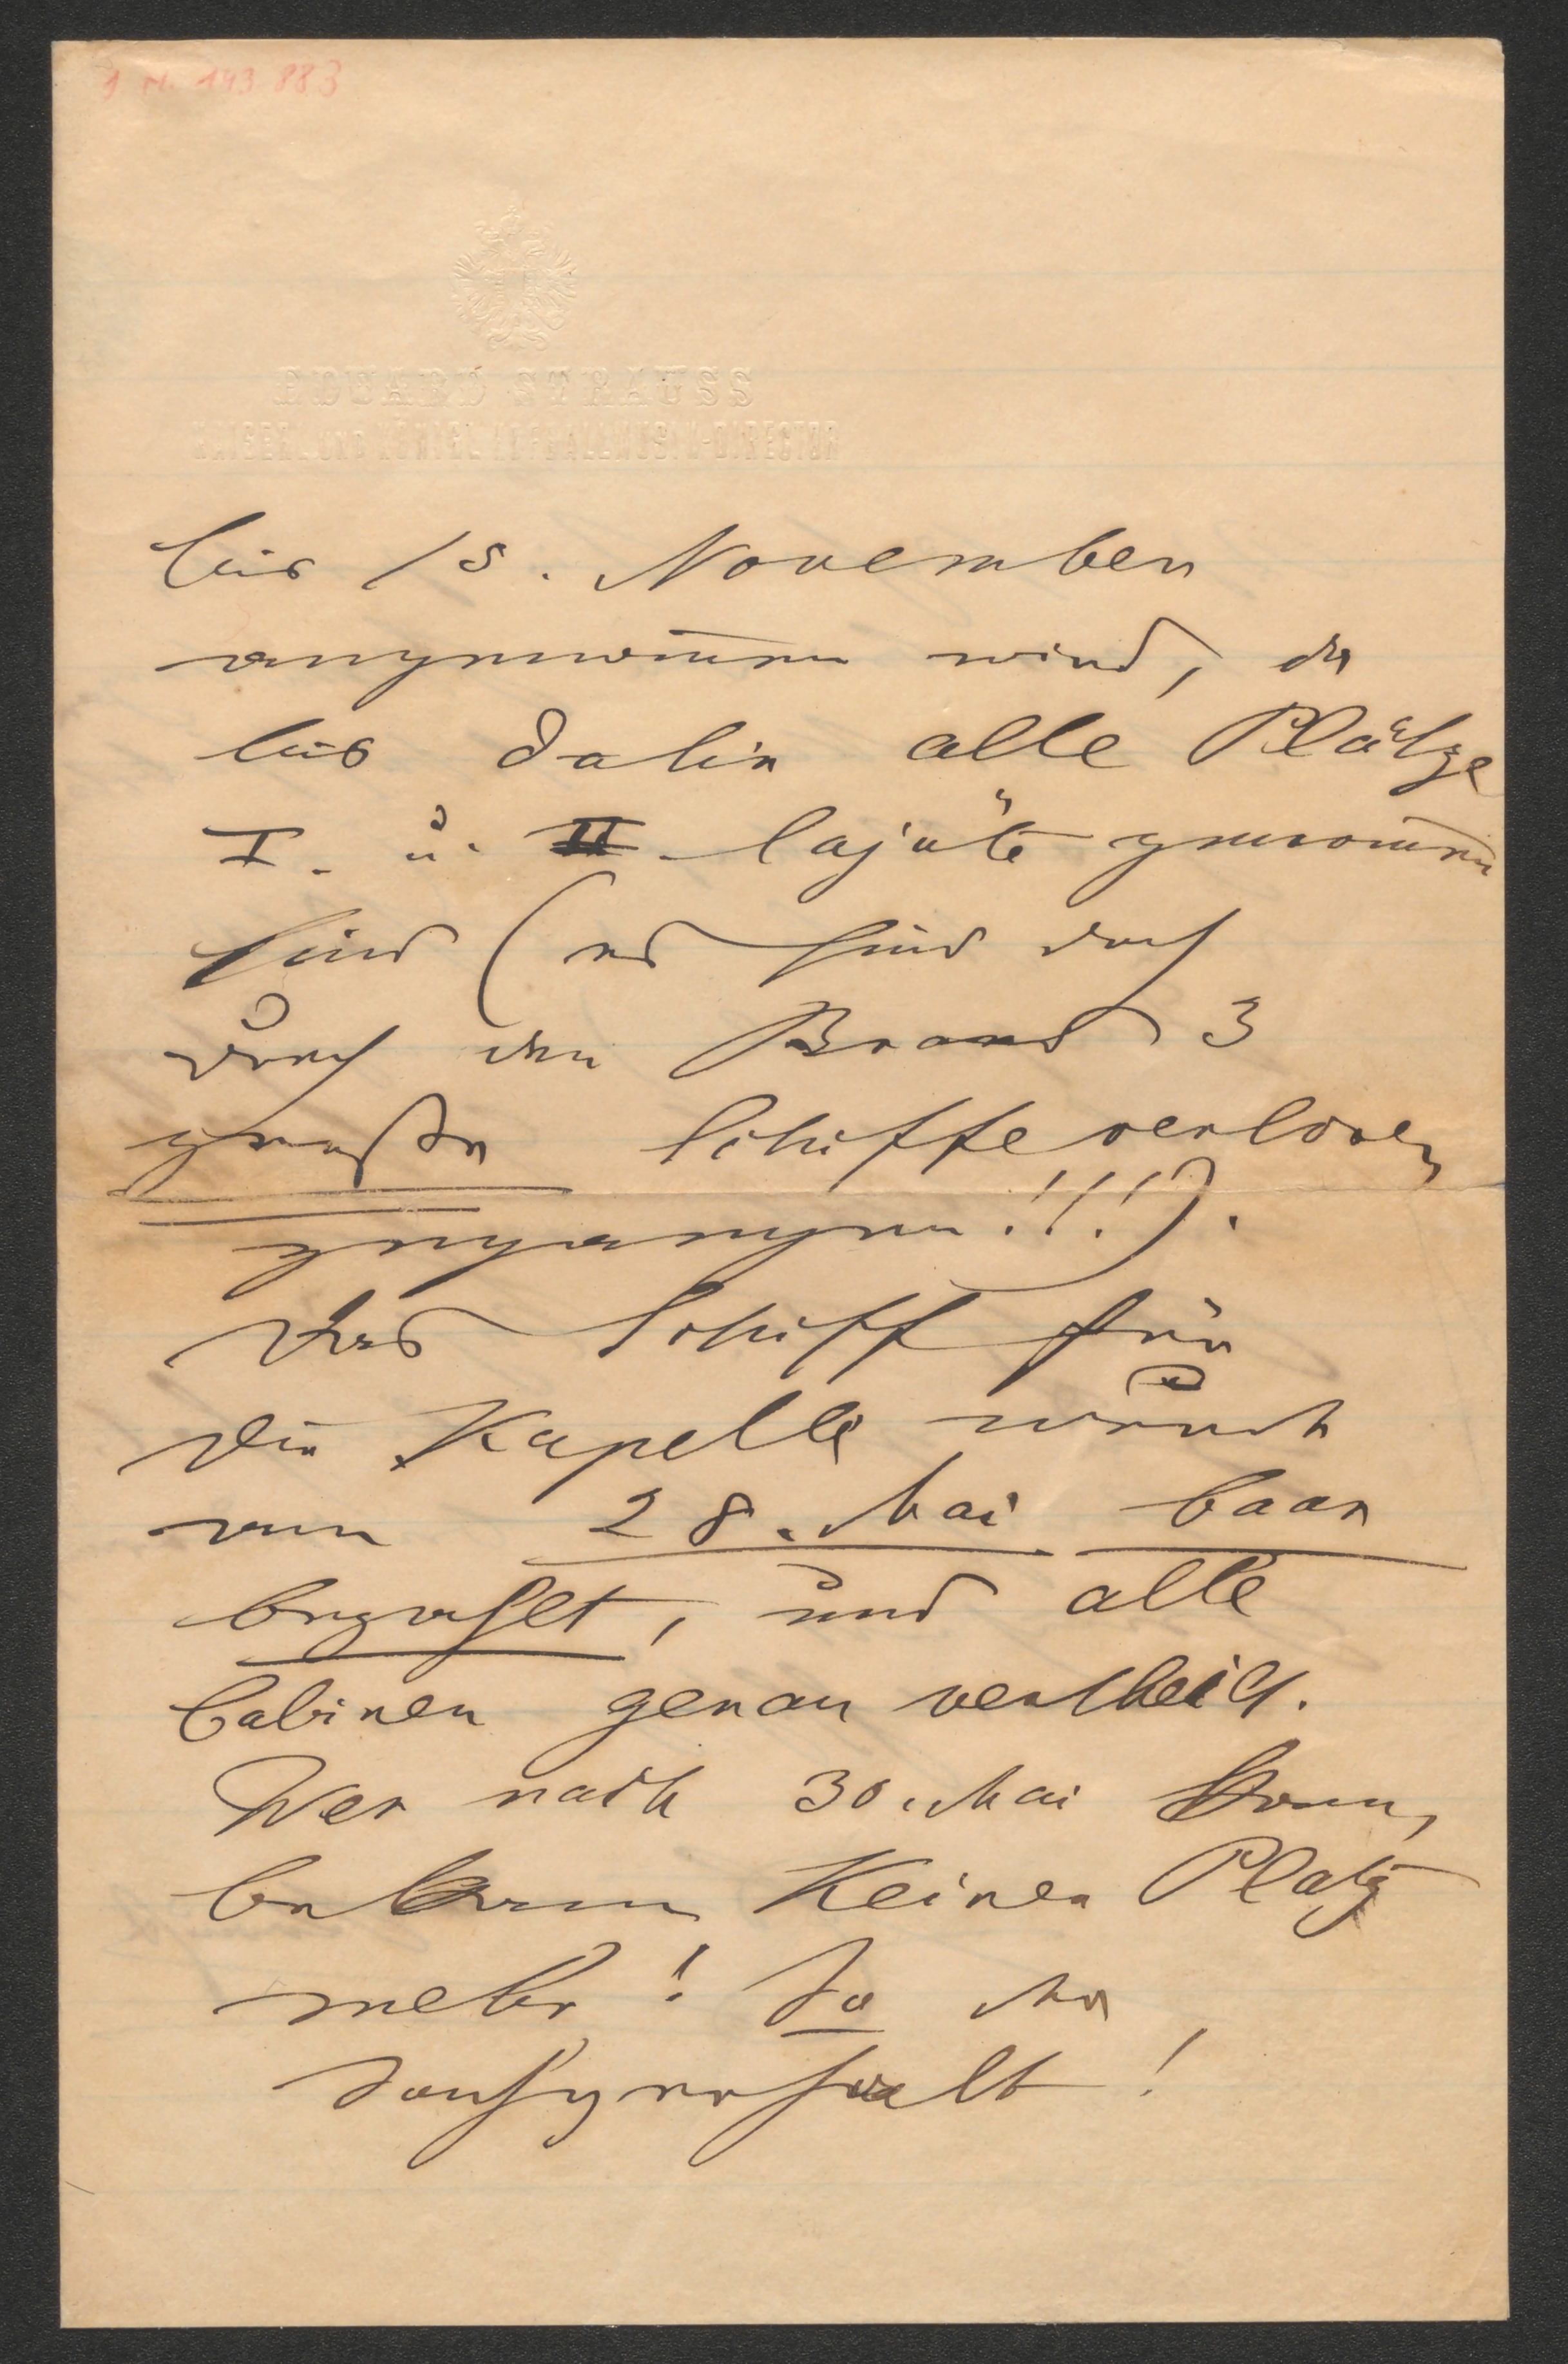 J. N. 143 883
EDUARD STRAUSS
KAISERL. UND KÖNIGL. HOFBALLMUSIK-DIRECTOR
bis 15. November
angenom̅en wird, da
bis dahin alle Plätze
I. u. II. Cajüte genom̅en
sind (es sind doch
durch den Brand 3
große Schiffe verloren
gegangen!!!).
Das Schiff für
die Kapelle wurde
am 28. Mai baar
bezahlt, und alle
Cabinen genau vertheilt.
Wer nach 30. Mai kam,
bekam Keinen Platz
mehr! So der
Sachverhalt!